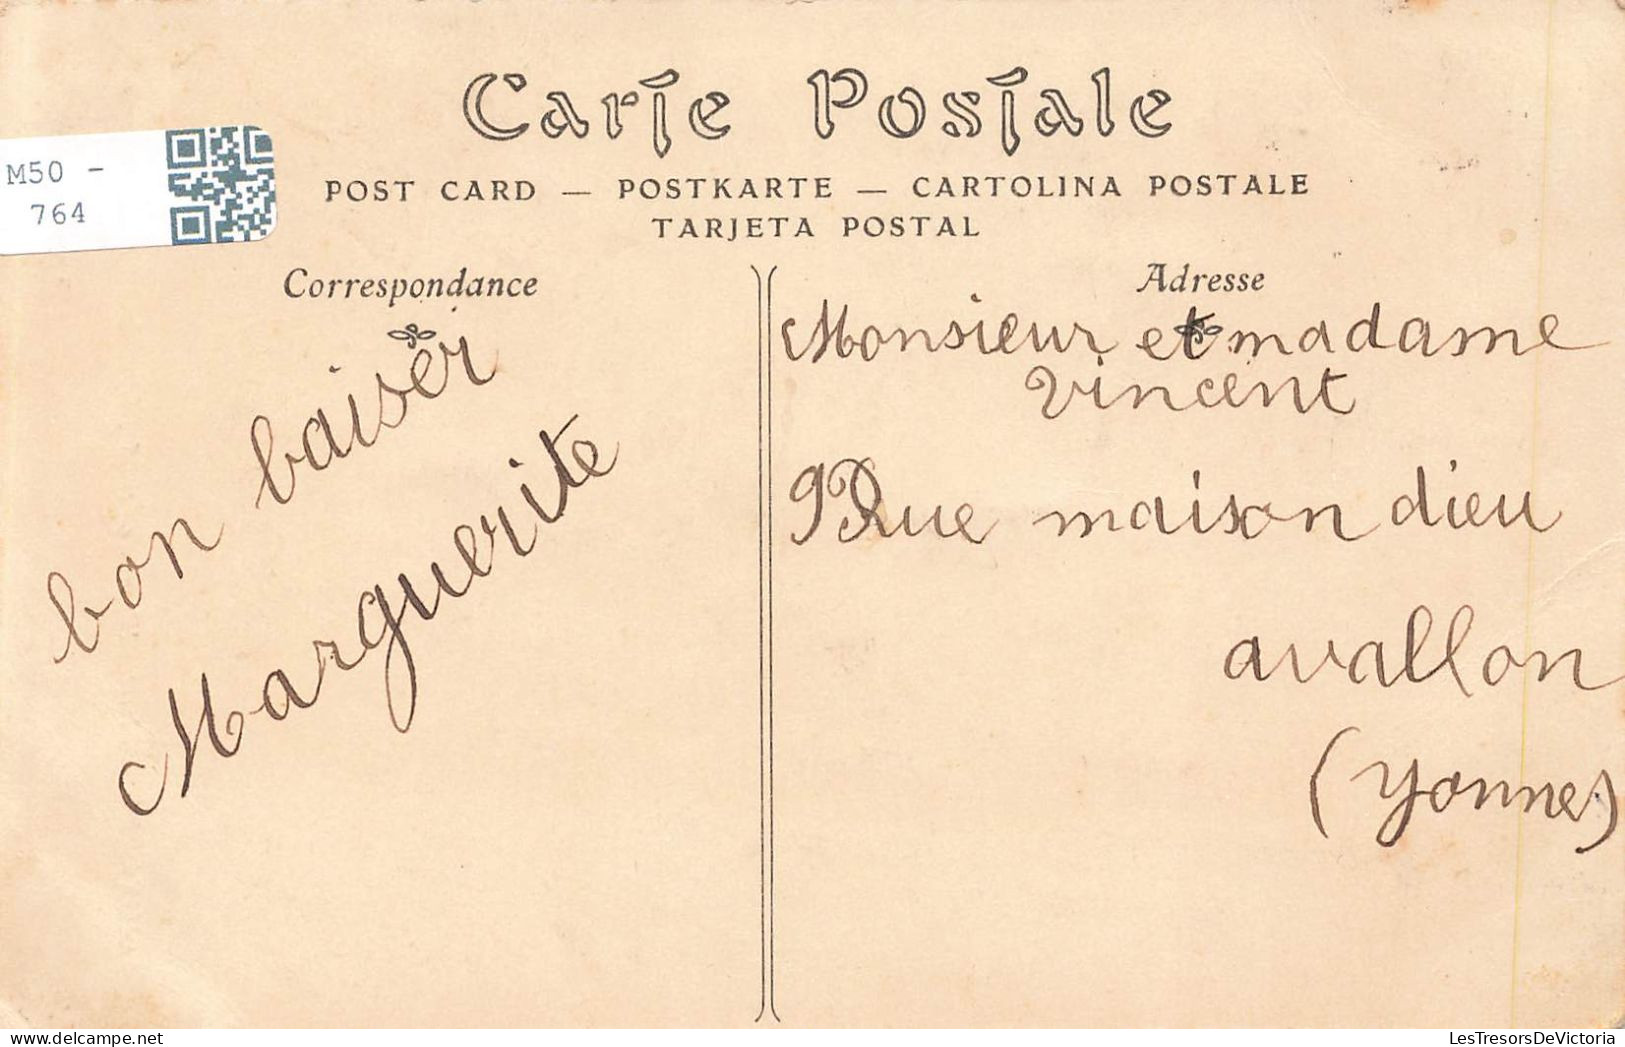 Carte Postale
POST CARD — POSTKARTE — CARTOLINA POSTALE
TARJETA POSTAL
M50 -
764
Correspondance
bon baiser
Marguerite
Adresse
Monsieur et madame
Vincent
9 Rue maison dieu
avallon
(Yonne)
LesTresorsDeVictoria